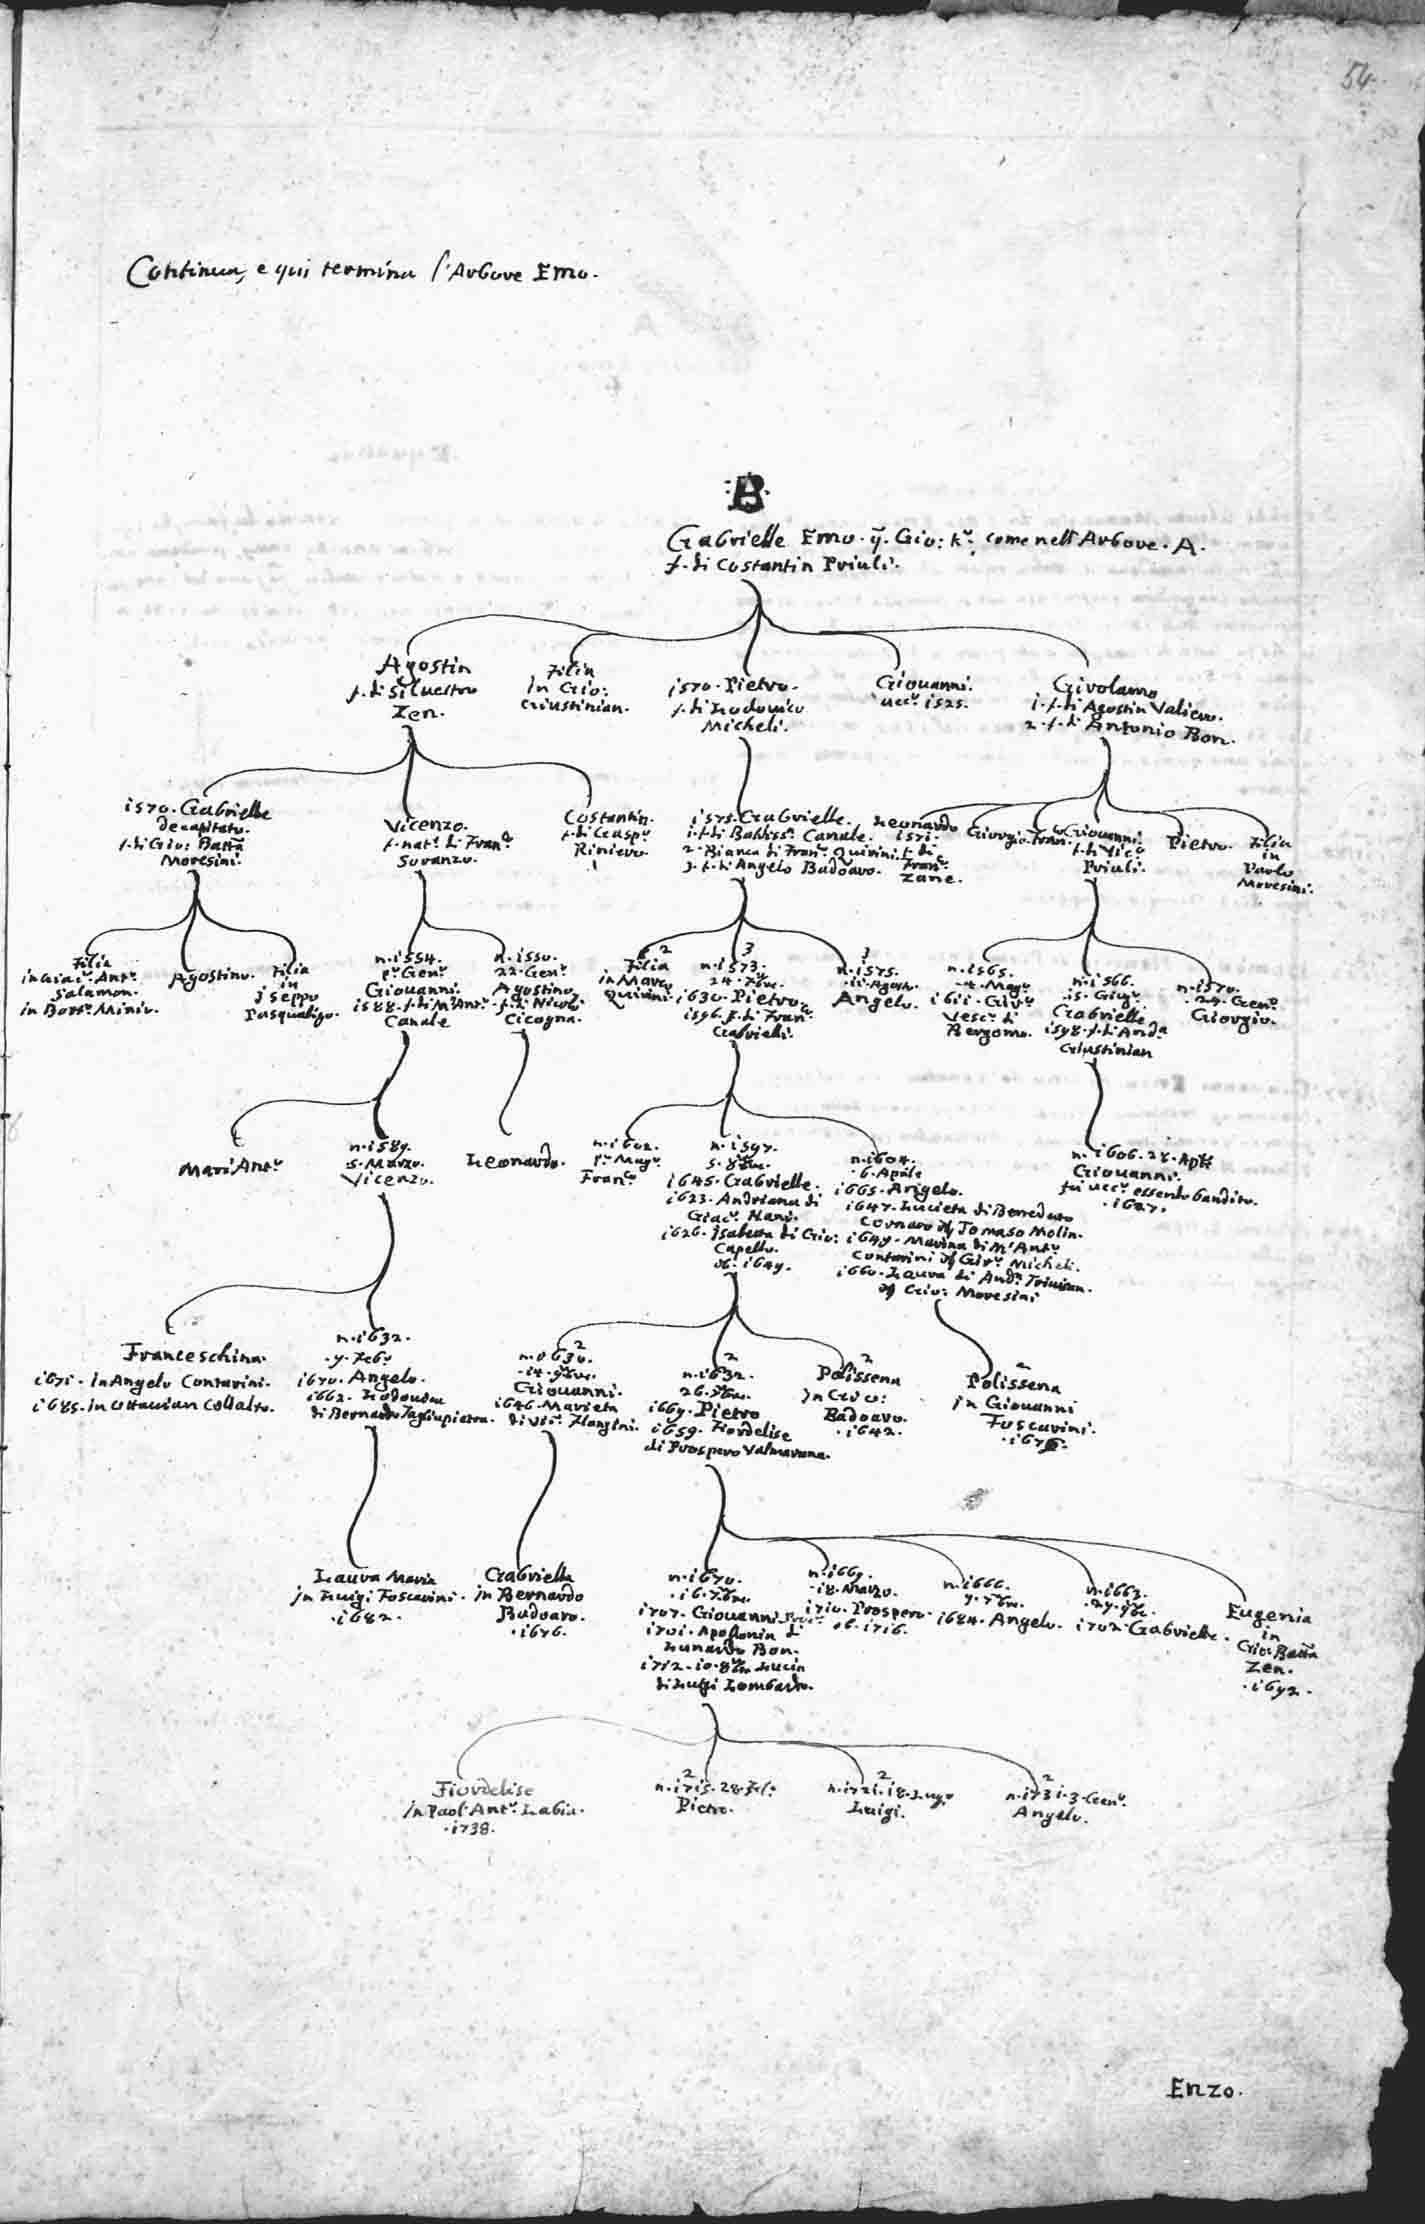 54.
Continua, e qui termina l'Arbore Emo.
B
Gabrielle Emo. q. Gio: Kr. come nell'Arbore. A.
f. di Costantin Priuli.
Agostin
f. di Siluestro
Zen.
Filia
in Gio:
Giustinian.
1570. Pietro.
f. di Lodovico
Micheli.
Giouanni.
ucc.º 1525.
Girolamo
1. f. di Agostin Valiero.
2. f. di Antonio Bon.
1570. Gabrielle
decapitato.
f. di Gio: Batta
Moresini.
Vicenzo.
f. nat. di Fran.º
Soranzo.
Costantin.
f. di Gasp.º
Riniero.
1575. Gabrielle.
1. f. di Baldiss.ª Canale.
2. Bianca di Fran.º Quirini.
3. f. di Angelo Badoaro.
Leonardo
1571.
f. di
Fran.º
Zane.
Giorgio.
Fran.º
Giouanni.
f. di Vic.º
Priuli.
Pietro.
Filia
in
Paolo
Moresini.
Filia
in Giac.º Ant.º
Salamon.
in Bort.º Minio.
Agostino.
Filia
in
Iseppo
Pasqualigo.
n. 1554.
p.º Gen.º
Giouanni.
1588. f. di M. Ant.º
Canale
n. 1550.
22. Gen.º
Agostino
f. di Nicolò
Cicogna.
2
Filia
in Marco
Quirini.
3
n. 1573.
24. 7bre.
1630. Pietro.
1596. f. di Fran.º
Gabrielli.
3
n. 1575.
11. Agosto.
Angelo.
n. 1565.
4. Magº
1611. Gir.º
Vesc.º di
Bergomo.
n. 1566.
15. Giugº
Gabrielle
1598. f. di And.ª
Giustinian
n. 1570.
24. Gen.º
Giorgio.
Mari'Ant.º
n. 1589.
5. Marzo.
Vicenzo.
Leonardo.
n. 1602.
p.º Magº
Fran.º
n. 1597.
5. 8bre.
1645. Gabrielle.
1623. Andriana di
Giac.º Nani.
1626. Isabetta di Gio:
Capello.
ob. 1649.
n. 1604.
6. Aprile
1665. Angelo.
1647. Lucieta di Benedetto
Cornaro Tomaso Molin.
1649. Marina di M. Ant.º
Contarini Gir.º Micheli.
1660. Laura di And.ª Triuisan.
Gio: Moresini
n. 1606. 28. Aple
Giouanni.
fu ucc.º essendo bandito.
1627.
Franceschina.
1671. in Angelo Contarini.
1685. in Ottauian Collalto.
n. 1632.
9. Feb.º
1670. Angelo.
1662. Lodouica
di Bernardo Tagliapietra.
2
n. 1630.
14. 9bre.
Giouanni.
1646. Marieta
di Vic.º Flangini.
2
n. 1632.
1669. Pietro
1659. Fiordelise
di Prospero Valmarana.
2
Polissena
in Gio:
Badoaro.
1642.
2
Polissena
in Giouanni
Foscarini.
Laura Maria
in Luigi Foscarini.
1682.
Gabriella
in Bernardo
Badoaro.
1676.
n. 1670.
16. 7bre.
1707. Giouanni Proc.º
1701. Apollonia di
Lunardo Bon.
1712. 10. 8bre Lucia
di Luigi Lombardo.
n. 1669.
18. Marzo.
1710. Prospero.
ob. 1716.
n. 1666.
9. 7bre.
1684. Angelo.
n. 1663.
1702. Gabrielle.
Eugenia
in
Gio: Batta
Zen.
1692.
Fiordelise
in Paol Ant.º Labia.
1738.
2
n. 1715. 28. Feb.º
Pietro.
2
n. 1721. 18. Lugº
Luigi.
2
n. 1731. 3. Gen.º
Angelo.
Enzo.